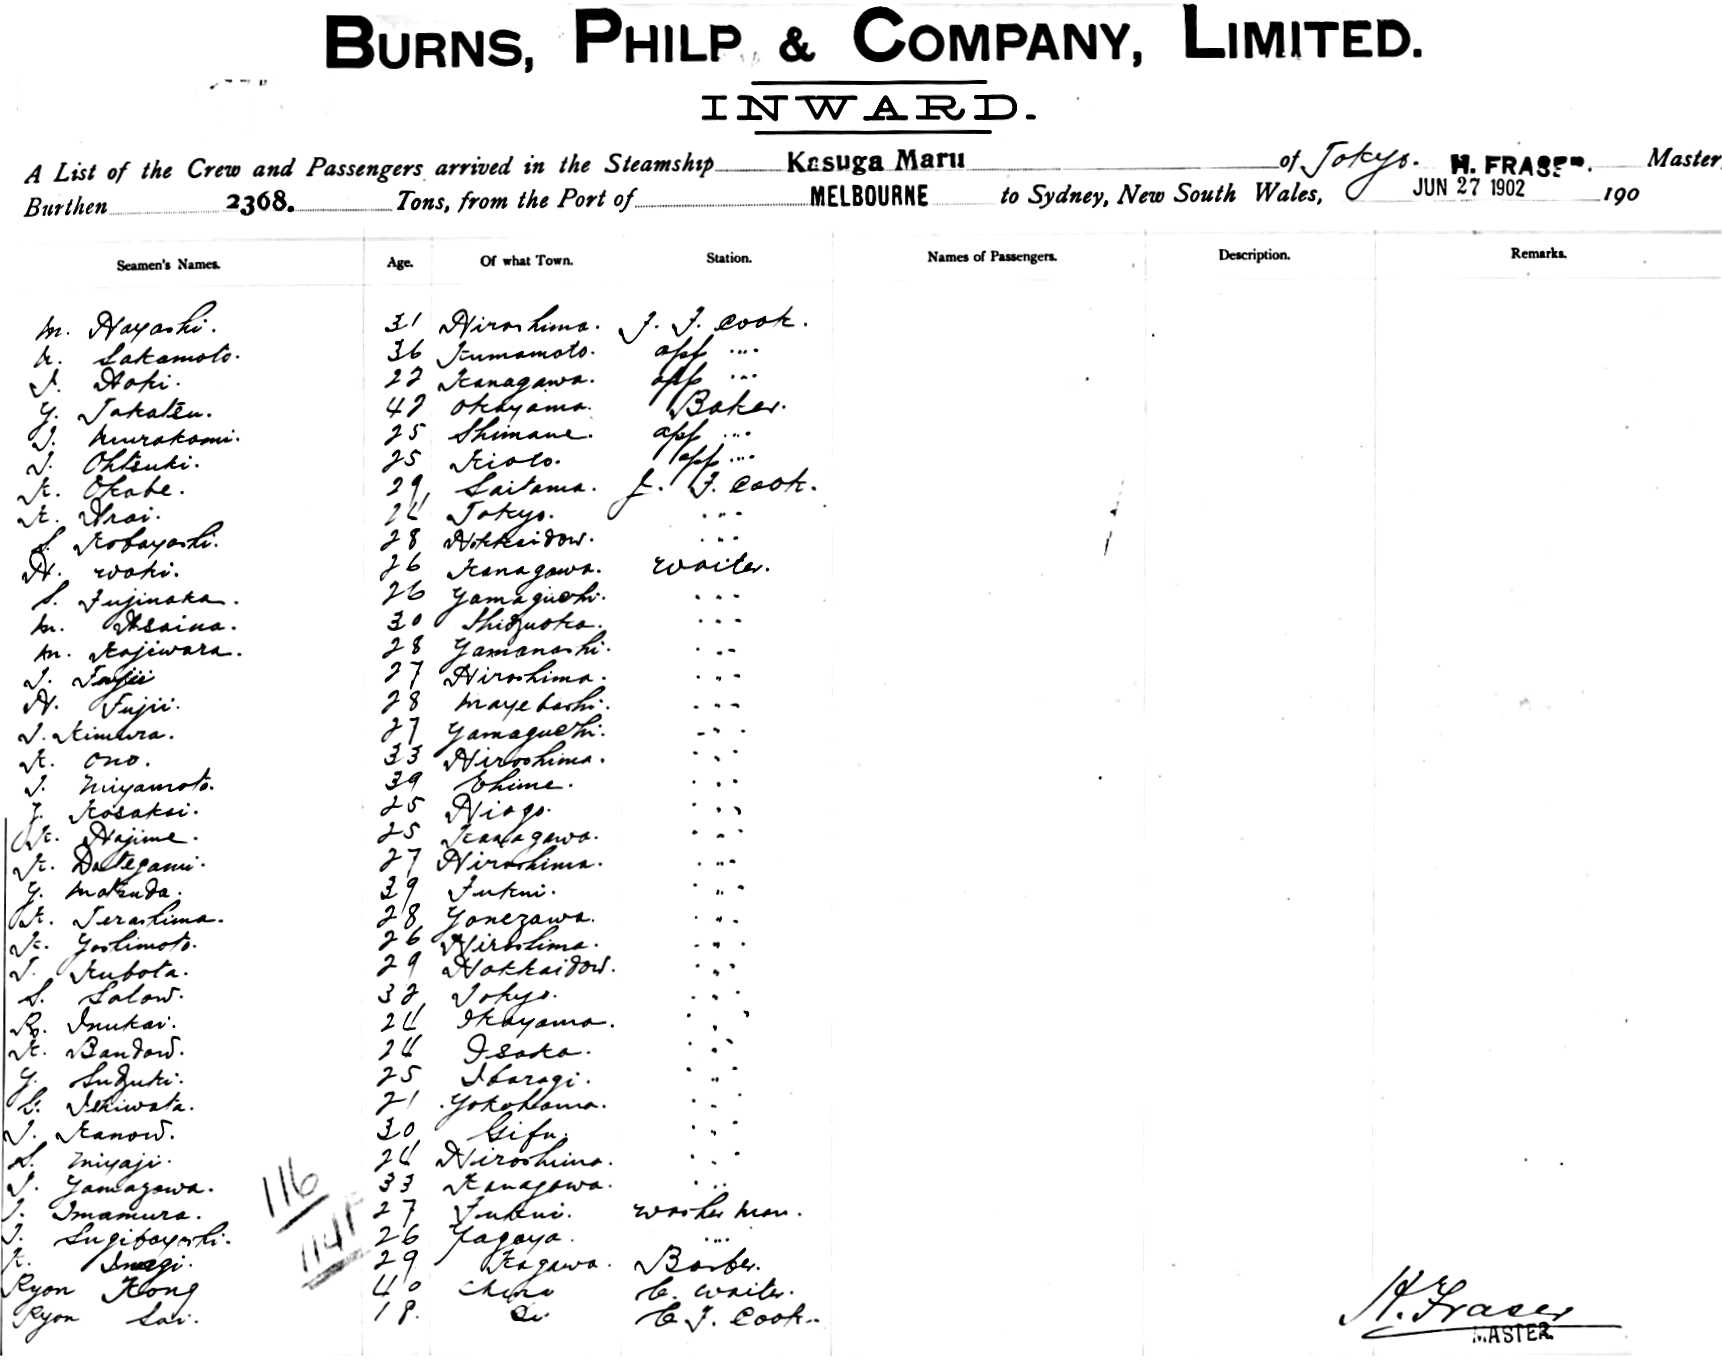 BURNS, PHILP & COMPANY, LIMITED.
INWARD.
A List of the Crew and Passengers arrived in the Steamship Kasuga Maru of Tokyo. H. FRASER. Master
Burthen 2368. Tons, from the Port of MELBOURNE to Sydney, New South Wales, JUN 27 1902 190
Seamen's Names. Age. Of what Town. Station. Names of Passengers. Description. Remarks.
M. Hayashi. 31 Hiroshima. J. F. Cook.
K. Sakamoto. 36 Kumamoto. app "
I. Aoki. 22 Kanagawa. app "
Y. Takatsu. 42 Okayama. Baker.
T. Murakami. 25 Shimane. app "
T. Ohtsuki. 25 Kioto. app "
K. Okabe. 29 Saitama. J. F. Cook.
K. Arai. 24 Tokyo. "
S. Kobayashi. 28 Hokkaidow. "
H. Waki. 26 Kanagawa. Waiter.
S. Fujinaka. 26 Yamaguchi. "
M. Asaina. 30 Shidzuoka. "
M. Kajiwara. 28 Yamanashi. "
T. Fujii 27 Hiroshima. "
H. Fujii. 28 Mayebashi. "
T. Kimura. 27 Yamaguchi. "
K. Ono. 33 Hiroshima. "
T. Miyamoto. 39 Ehime. "
T. Kosakai. 25 Hiogo. "
K. Hajime. 25 Kanagawa. "
K. Dategami. 27 Hiroshima. "
Y. Matsuda. 39 Fukui. "
K. Terashima. 28 Yonezawa. "
K. Yoshimoto. 26 Hiroshima. "
T. Kubota. 29 Hokkaidow. "
S. Satow. 32 Tokyo. "
R. Inukai. 24 Okayama. "
K. Bandow. 24 Osaka. "
Y. Sudzuki. 25 Ibaragi. "
S. Ishiwata. 21 Yokohama. "
T. Kanow. 30 Gifu. "
S. Miyaji. 24 Hiroshima. "
T. Yamagawa. 33 Kanagawa. "
T. Imamura. 27 Fukui. Washerman.
T. Sugibayashi. 26 Kagawa. "
K. 29 Kagawa. Barber.
Ryon Kong 40 China C. Waiter.
Ryon Sai. 18. Do C. F. Cook.
116
H. Fraser
MASTER.